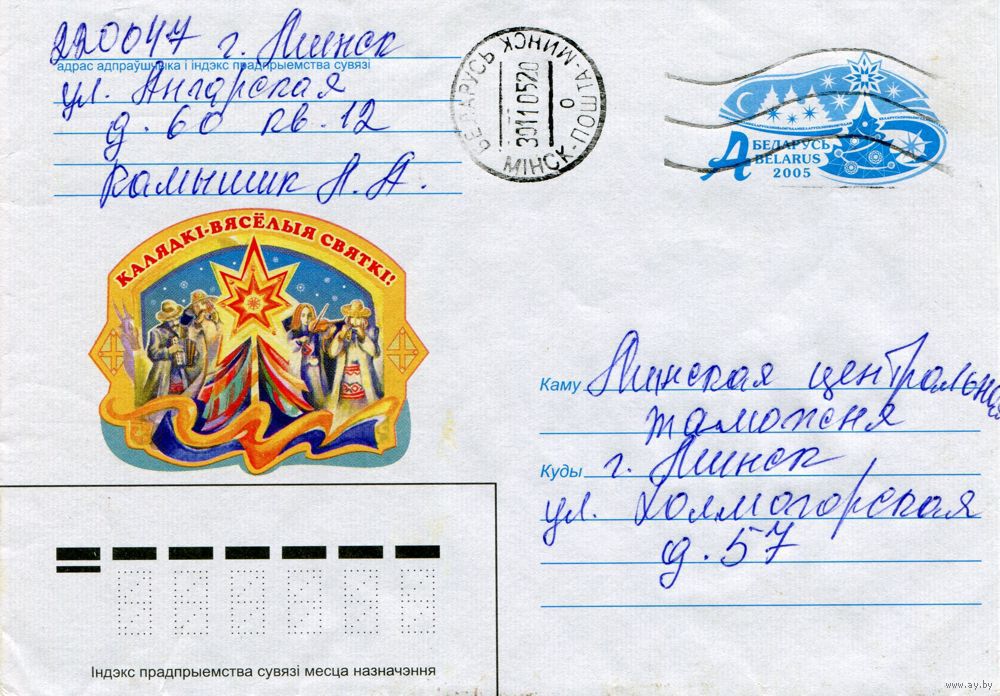 220047 г. Минск
адрас адпраўшчыка і індэкс прадпрыемства сувязі
ул. Ангарская
д. 60 кв. 12
Камышик А. А.
БЕЛАРУСЬ МИНСК
ПОШТА-МИНСК
30110520
МІНСК-ПОШТА
А БЕЛАРУСЬ
BELARUS
2005
КАЛЯДКІ-ВЯСЁЛЫЯ СВЯТКІ!
Каму Минская центральная
таможня
Куды г. Минск
ул. Холмогорская
д. 57
Індэкс прадпрыемства сувязі месца назначэння
www.ay.by